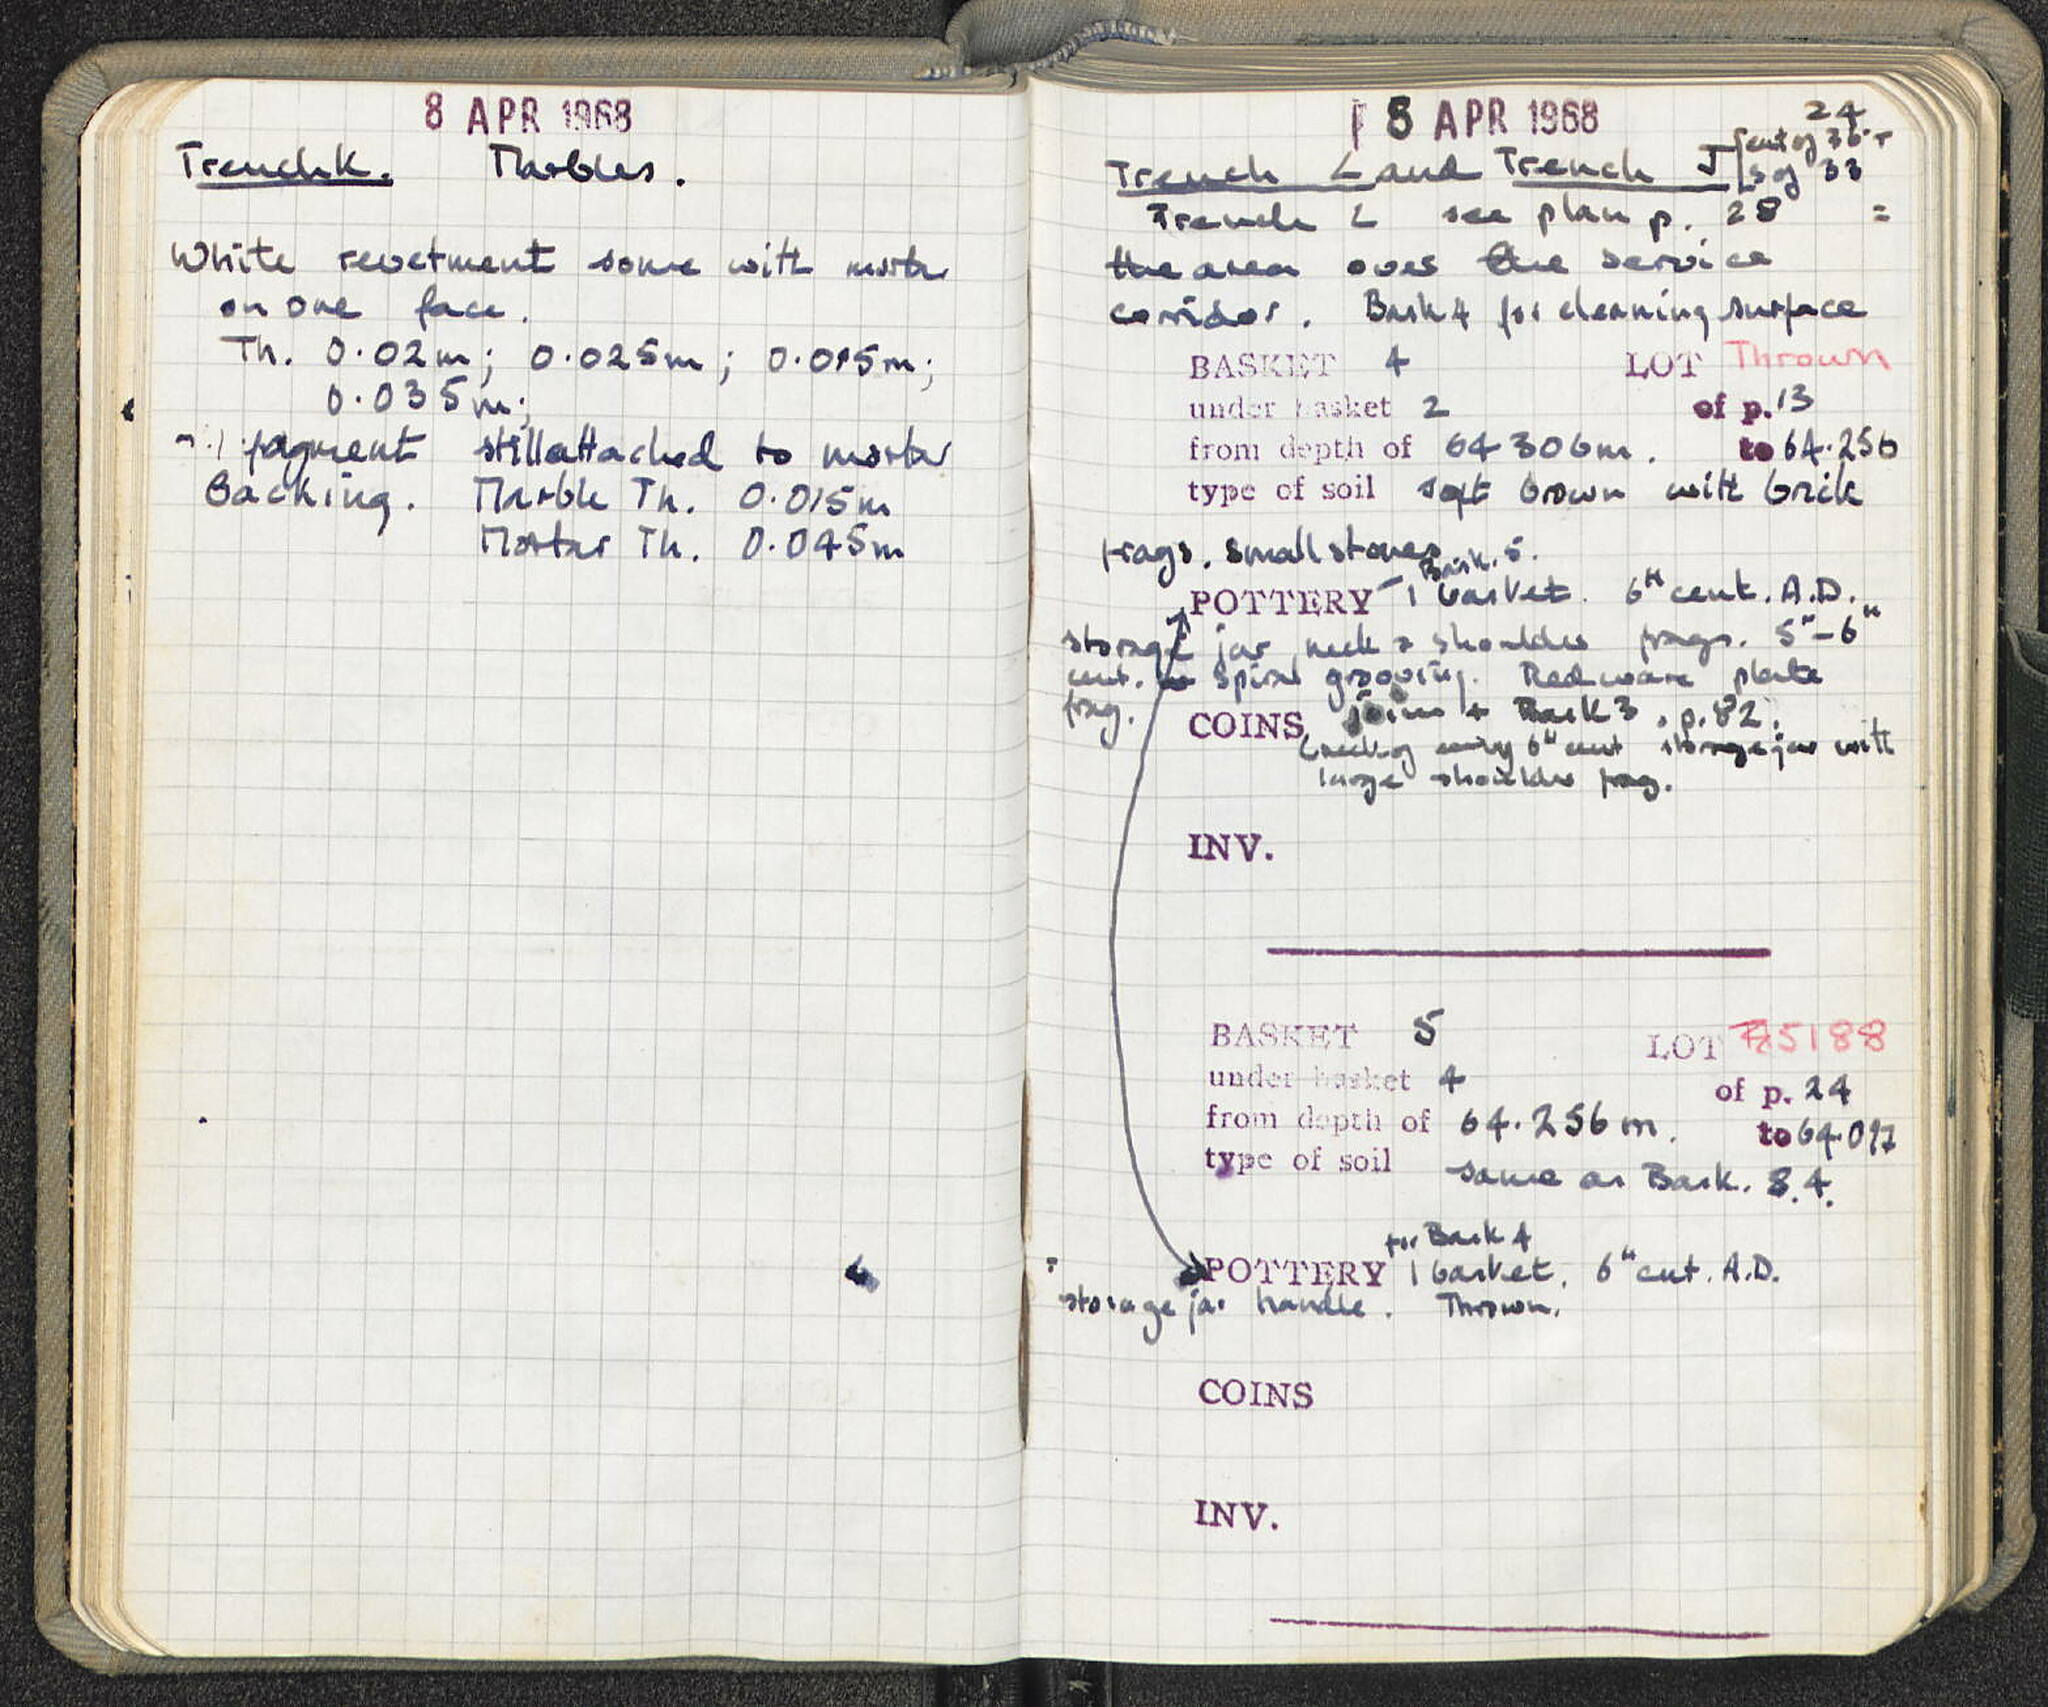 8 APR 1968
Trench K. Marbles.
White revetment some with mortar
on one face.
Th. 0.02m; 0.025m; 0.015m;
0.035m;
1 fragment still attached to mortar
backing. Marble Th. 0.015m
Mortar Th. 0.045m
8 APR 1968
24
Trench L and Trench J
Trench L see plan p. 28 =
the area over the service
corridor. Bask 4 for cleaning surface
BASKET 4 LOT Thrown
under basket 2 of p. 13
from depth of 64.306m. to 64.256
type of soil soft brown with brick
frags. small stones
Bask. 5.
POTTERY 1 basket. 6th cent. A.D.
storage jar neck & shoulder frags. 5th-6th
cent. spiral grooving. Red ware plate
frag.
COINS joins + Bask 3, p. 82.
neck of early 6th cent storage jar with
large shoulder frag.
INV.
BASKET 5 LOT 5188
under basket 4 of p. 24
from depth of 64.256m. to 64.097
type of soil same as Bask. 4.
for Bask 4
POTTERY 1 basket. 6th cent. A.D.
storage jar handle. Thrown.
COINS
INV.